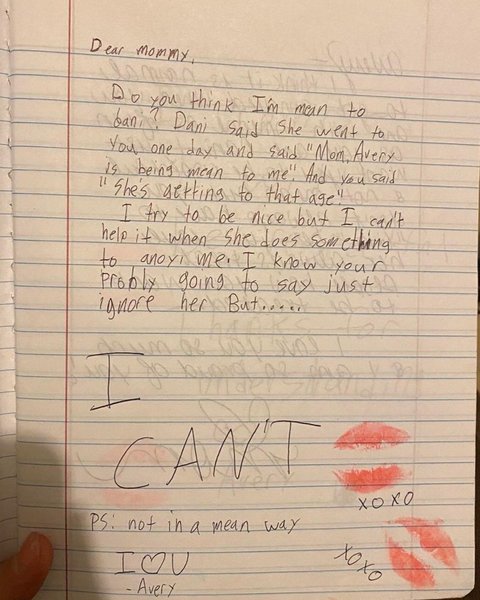 Dear mommy,
Do you think I'm mean to
Dani? Dani said she went to
you one day and said "Mom, Avery
is being mean to me" And you said
"She's getting to that age."
I try to be nice but I can't
help it when she does something
to anoyi me. I know your
probly going to say just
ignore her But.....
I
CAN'T
xoxo
PS: not in a mean way
xoxo
I ♡ U
- Avery